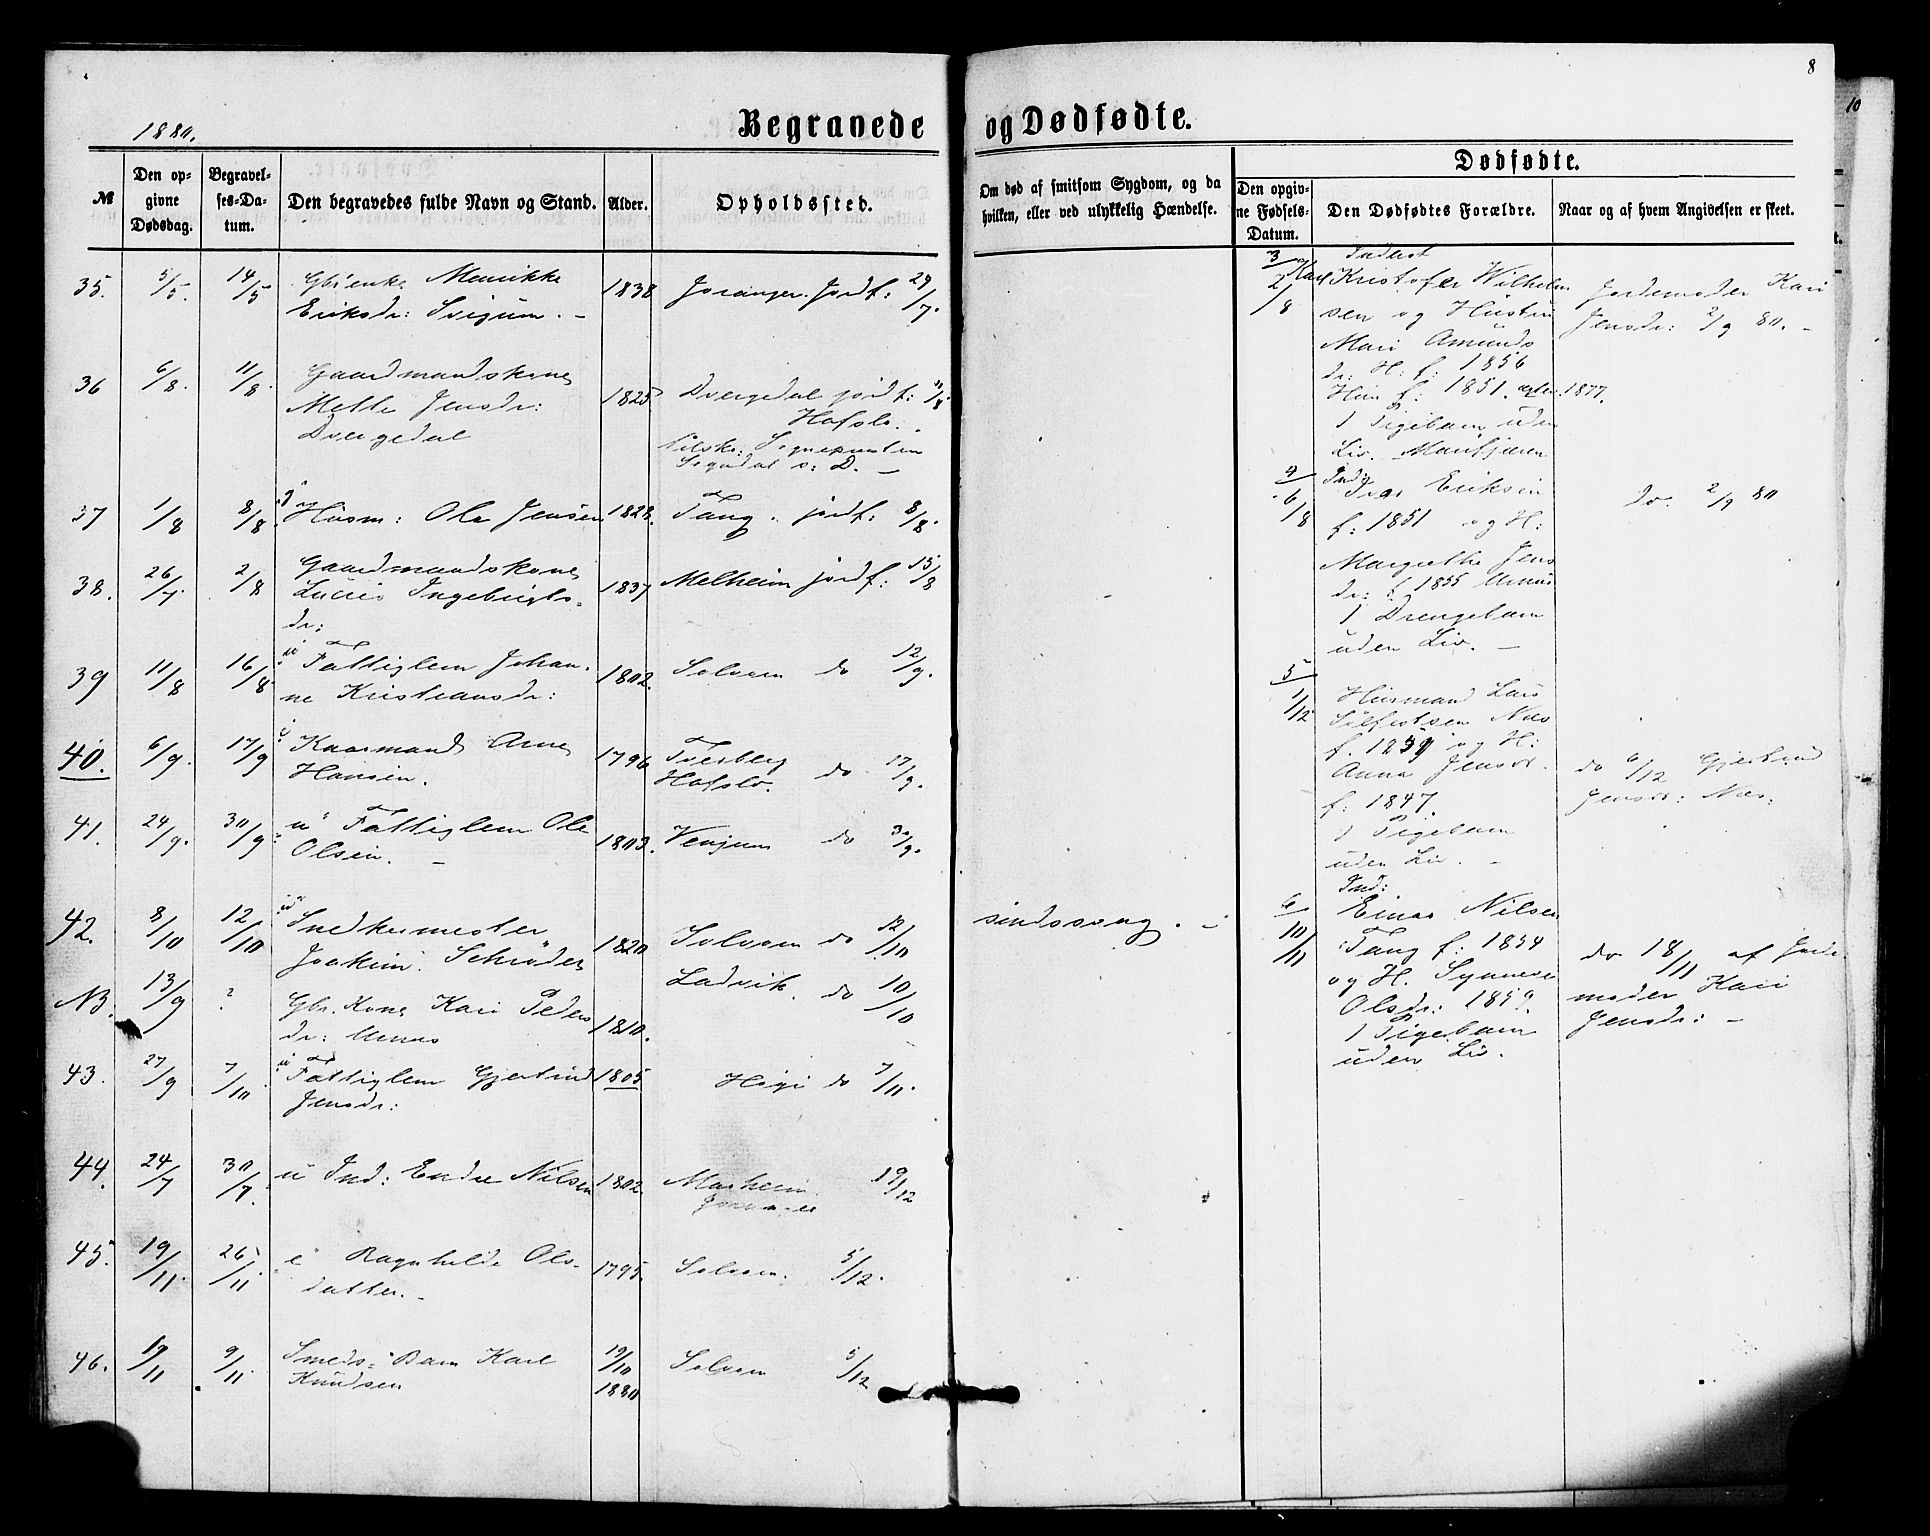 8
10
1880.
Begravede og Dødfødte.
№
Den opgivne Dødsdag.
Begravelses-Datum.
Den begravedes fulde Navn og Stand.
Alder.
Opholdssted.
Om død af smitsom Sygdom, og da hvilken, eller ved ulykkelig Hændelse.
Dødfødte.
Den opgivne Fødsels-Datum.
Den Dødfødtes Forældre.
Naar og af hvem Angivelsen er skeet.
35. 5/5. 14/5 Gbr enke Marikke 1838 Joranger. Jordf: 29/7.
Eriksdr: Svigum. -
36 6/8. 11/8. Gaardmandskone 1825 Dvergedal jordf: 11/8.
Mette Jensdr: Hafslo.
Dvergedal
Sogndal s: D. -
37 1/8 8/8. Husm: Ole Jensen 1828. Tang. jordf: 8/8.
38. 26/7 2/8 Gaardmandskone 1837 Melheim jordf: 15/8
Lucie Ingebrigts-
dr:
39 11/8 16/8 Fattiglem Johan- 1802. Solvorn do 12/9.
ne Kristiansdr:
40. 6/9. 17/9 Kaarmand Arne 1796 Tverberg do 17/9.
Hansen. Hafslo.
41. 24/9. 30/9 u Fattiglem Ole 1803. Venjum do 30/9.
Olsen. -
42. 8/10 12/10 Snedkermester 1820 Solvorn do 12/10 sindssvag. -
Joakim Schrøder
NB. 13/9 ? Gbr. Kone Kari Peders 1810. Ladvik. do 10/10
dr: Urnæs
43. 27/9 7/10 Fattiglem Gjertrud 1805 Høgi do 7/11.
Jensdr:
44. 24/7 30/7. u Ind: Endre Nilsen 1802. Marheim 19/12
45. 19/11. 26/11 e Ragnhilde Ols- 1795. Solvorn. 5/12.
datter. -
46. 19/11 9/11. Smeds-Barn Karl 19/10 1880 Solvorn 5/12
Knudsen
3
2/8
Inderst
Karl Kristofer Wilhelm
sen og Hustru
Mari Amunds
dr: H: f: 1856
Hun f: 1851. 1877.
1 Pigebarn uden
Liv. Marifjæren
Jordemoder Kari
Jensdr: 2/9 80. -
4
6/8
Ind:
Ivar Eriksen
f: 1851 og H:
Margrethe Jens
dr: f. 1855 Urnæs
1 Drengebarn
uden Liv. -
do. 2/9 80
5
1/12
Husmand Lars
Sjurtsen Næs
og H:
Anna Jensdr.
f: 1847.
1 Pigebarn
uden Liv. -
do 6/12 Gjertrud
Jensdr: Næs:
6
10/11
Ind:
Einar Nilsen
Tang f: 1854
og H. Synneve
Olsdr: 1859.
1 Pigebarn
uden Liv.
do 18/11 af Jorde-
moder Kari
Jensdr: -